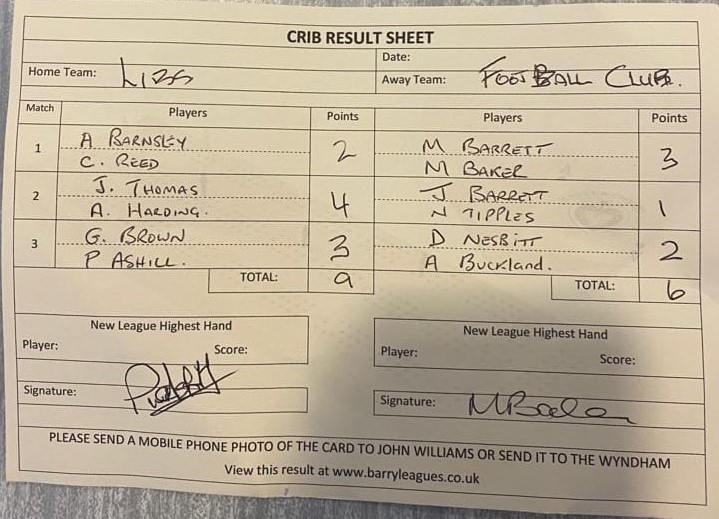 CRIB RESULT SHEET
Date:
Home Team: LIBS
Away Team: FOOTBALL CLUB.
Match Players Points Players Points
1 A BARNSLEY 2 M BARRETT 3
C. REED M BAKER
2 J. THOMAS 4 J BARRETT 1
A. HARDING. N TIPPLES
3 G. BROWN 3 D NESBITT 2
P ASHILL. A Buckland.
TOTAL: 9 TOTAL: 6
New League Highest Hand New League Highest Hand
Player: Score: Player: Score:
Signature: Signature:
PLEASE SEND A MOBILE PHONE PHOTO OF THE CARD TO JOHN WILLIAMS OR SEND IT TO THE WYNDHAM
View this result at www.barryleagues.co.uk